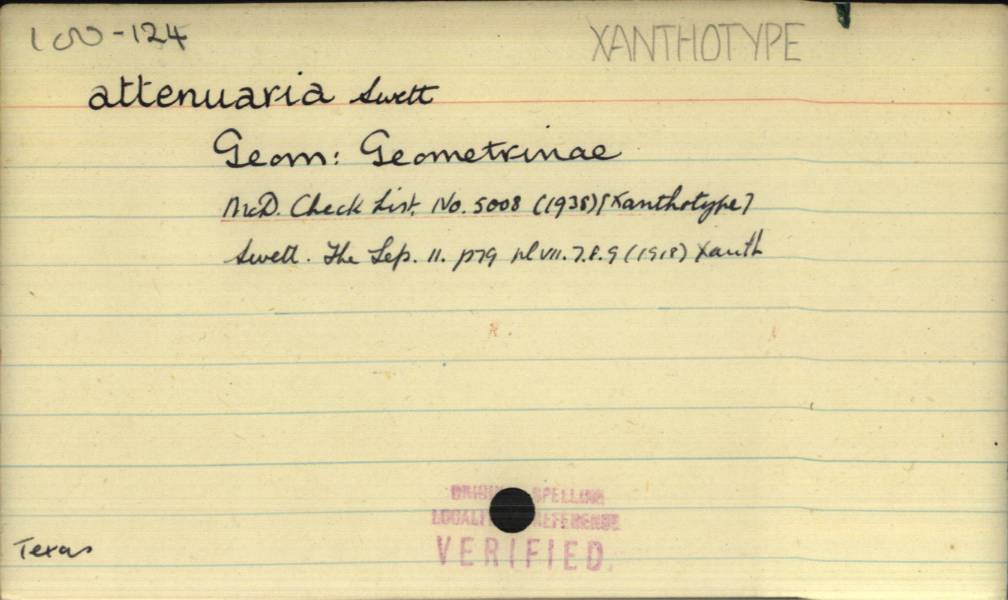 100-124
XANTHOTYPE
attenuaria Swett
Geom: Geometrinae
McD. Check List. No. 5008 (1938) [Xanthotype]
Swett. The Lep. 11. p79 pl VII. 7.8.9 (1918) Xanth
SPELLING
REFERENCE
VERIFIED.
Texas